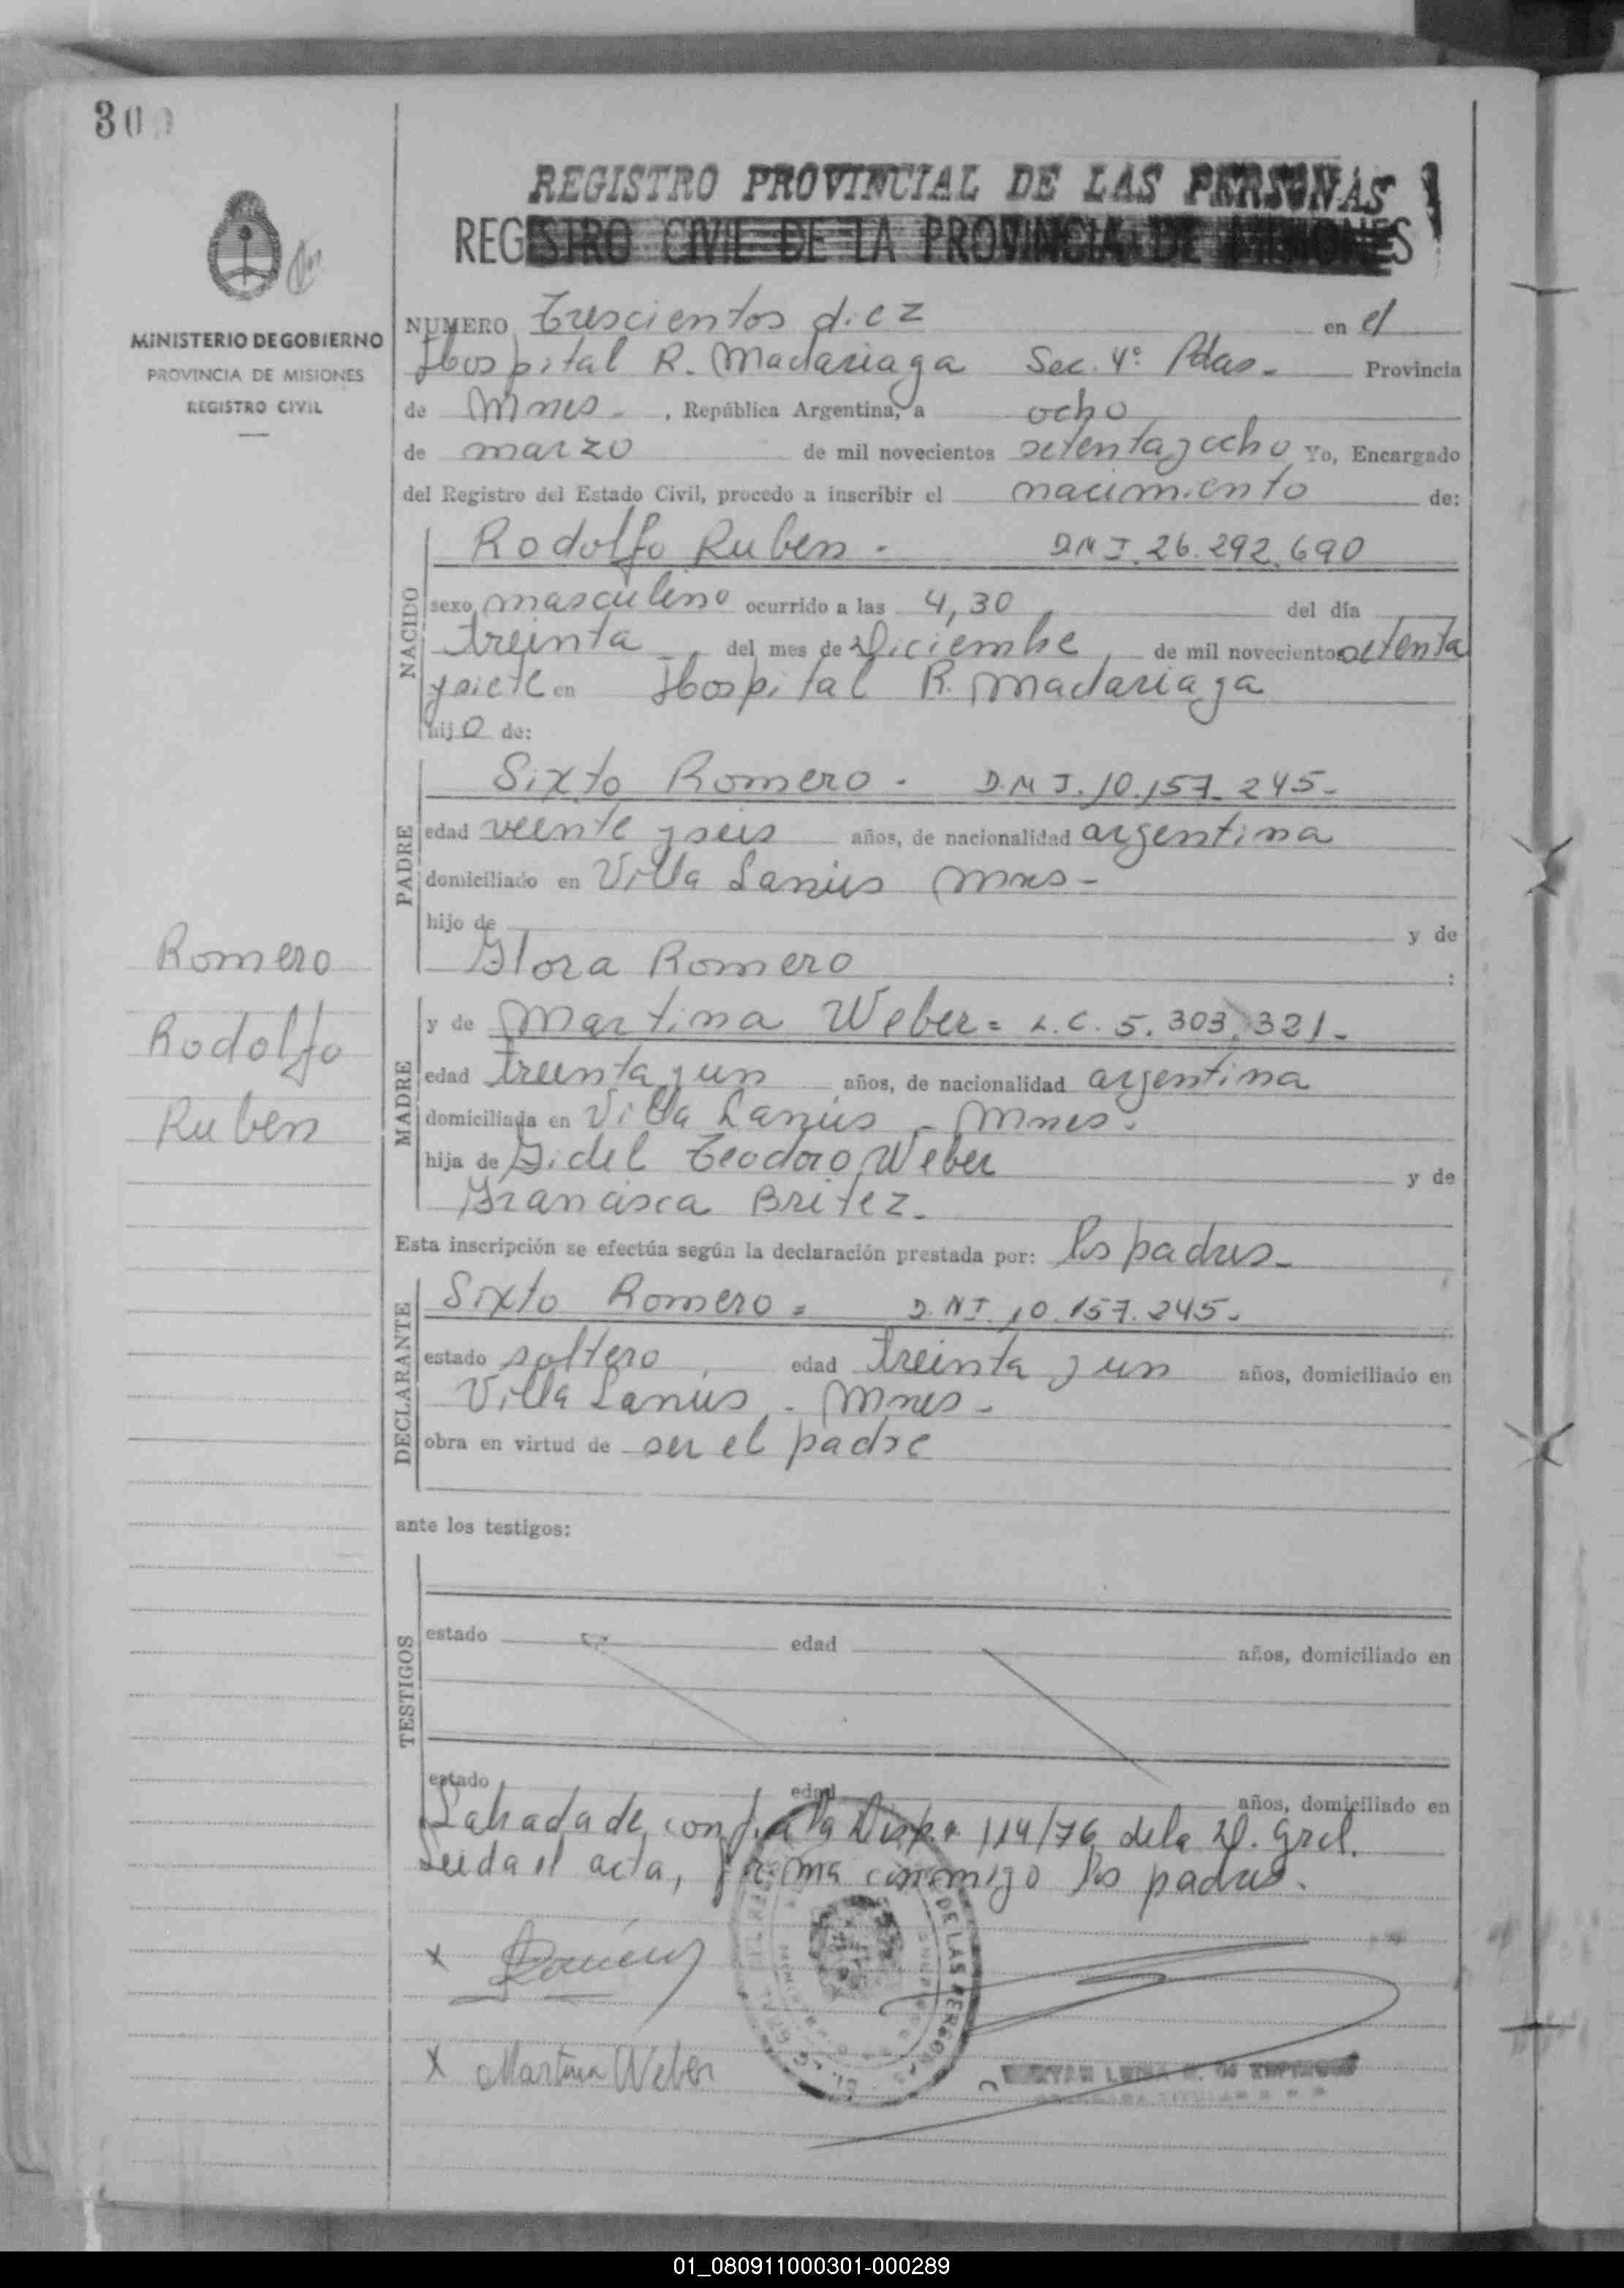 300
REGISTRO PROVINCIAL DE LAS PERSONAS
REGISTRO CIVIL DE LA PROVINCIA DE MISIONES
MINISTERIO DE GOBIERNO
PROVINCIA DE MISIONES
REGISTRO CIVIL
NUMERO Trescientos diez en el
Hospital R. Madariaga Sec. 4º Pdas. Provincia
de Mnes. , República Argentina, a ocho
de marzo de mil novecientos setenta y ocho Yo, Encargado
del Registro del Estado Civil, procedo a inscribir el nacimiento de:
NACIDO
Rodolfo Ruben. D.N.I. 26.292.690
sexo masculino ocurrido a las 4,30 del día
treinta del mes de Diciembre de mil novecientos setenta
y siete en Hospital R. Madariaga
hijo de:
PADRE
Sixto Romero. D.N.I. 10.157.245.
edad veinte y seis años, de nacionalidad argentina
domiciliado en Villa Lanús Mnes-
hijo de y de
Flora Romero :
Romero
Rodolfo
Ruben
MADRE
y de Martina Weber = L.C. 5.303.321-
edad treinta y un años, de nacionalidad argentina
domiciliada en Villa Lanús - Mnes.
hija de Fidel Teodoro Weber y de
Francisca Britez.
Esta inscripción se efectúa según la declaración prestada por: los padres-
DECLARANTE
Sixto Romero = D.N.I. 10.157.245-
estado soltero edad treinta y un años, domiciliado en
Villa Lanús - Mnes-
obra en virtud de ser el padre
ante los testigos:
TESTIGOS
estado edad años, domiciliado en
estado edad años, domiciliado en
Labrada de conf. a la Disp. 114/76 de la D. Gral.
Leida el acta, firma conmigo los padres.
x Romero
x Martina Weber
DE LAS PERSONAS
01_080911000301-000289